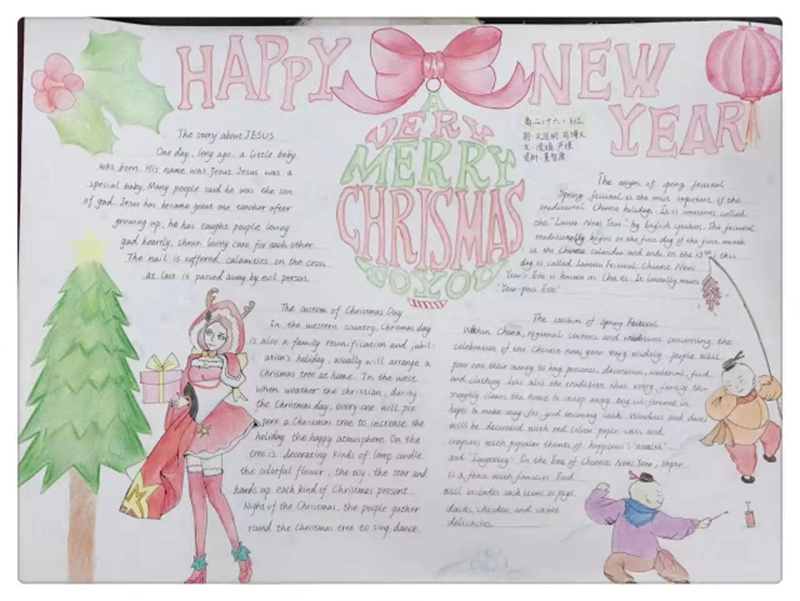 HAPPY NEW YEAR
A
VERY
MERRY
CHRISMAS
TO YOU
The story about JESUS
One day, long ago, a little baby
was born. His name was Jesus Jesus was a
special baby. Many people said he was the son
of god. Jesus has became great one teacher after
growing up, he has taught people loving
god heartly, shown loving care for each other
The nail is suffered calamities on the cross
at last is passed away by evil person.
The custom of Christmas Day
In the western country, Chrismas day
is also a family reunification and jubil-
arian's holiday, usually will arrange a
Chrismas tree at home. In the west
when weather the christian, during
the Christmas day, every one will pre-
pare a Christmas tree to increase the
holiday the happy atmosphere. On the
tree is decorating kinds of lamp, candle,
the colorful flower, the toy, the star and
hands up each kind of Christmas present.
Night of the Christmas, the people gather
round the Christmas tree to sing, dance.
高二(十八)班
The origin of spring festival
Spring festival is the most important of the
traditional Chinese holidays. It is sometimes called
the "Lunar New Year" by English speakers. The festival
traditionally begins on the first day of the first month
in the Chinese calendar and ends on the 15th; this
day is called Lantern Festival. Chinese New
Year's Eve is known as Chúxī. It literally means
"Year-pass Eve"
The custom of Spring Festival
Within China, regional customs and traditions concerning the
celebration of the Chinese new year vary widely. people will
pour out their money to buy presents, decoration, material, food
and clothing. It's also the tradition that every family tho-
roughly cleans the house to sweep away any ill-fortune in
hopes to make way for good incoming luck. Windows and doors
will be decorated with red colour paper-cuts and
couplets with popular themes of "happiness", "wealth"
and "longevity". On the Eve of Chinese New Year, supper
is a feast with families. Food
will include such items as pigs,
ducks, chicken and sweet
delicacies.